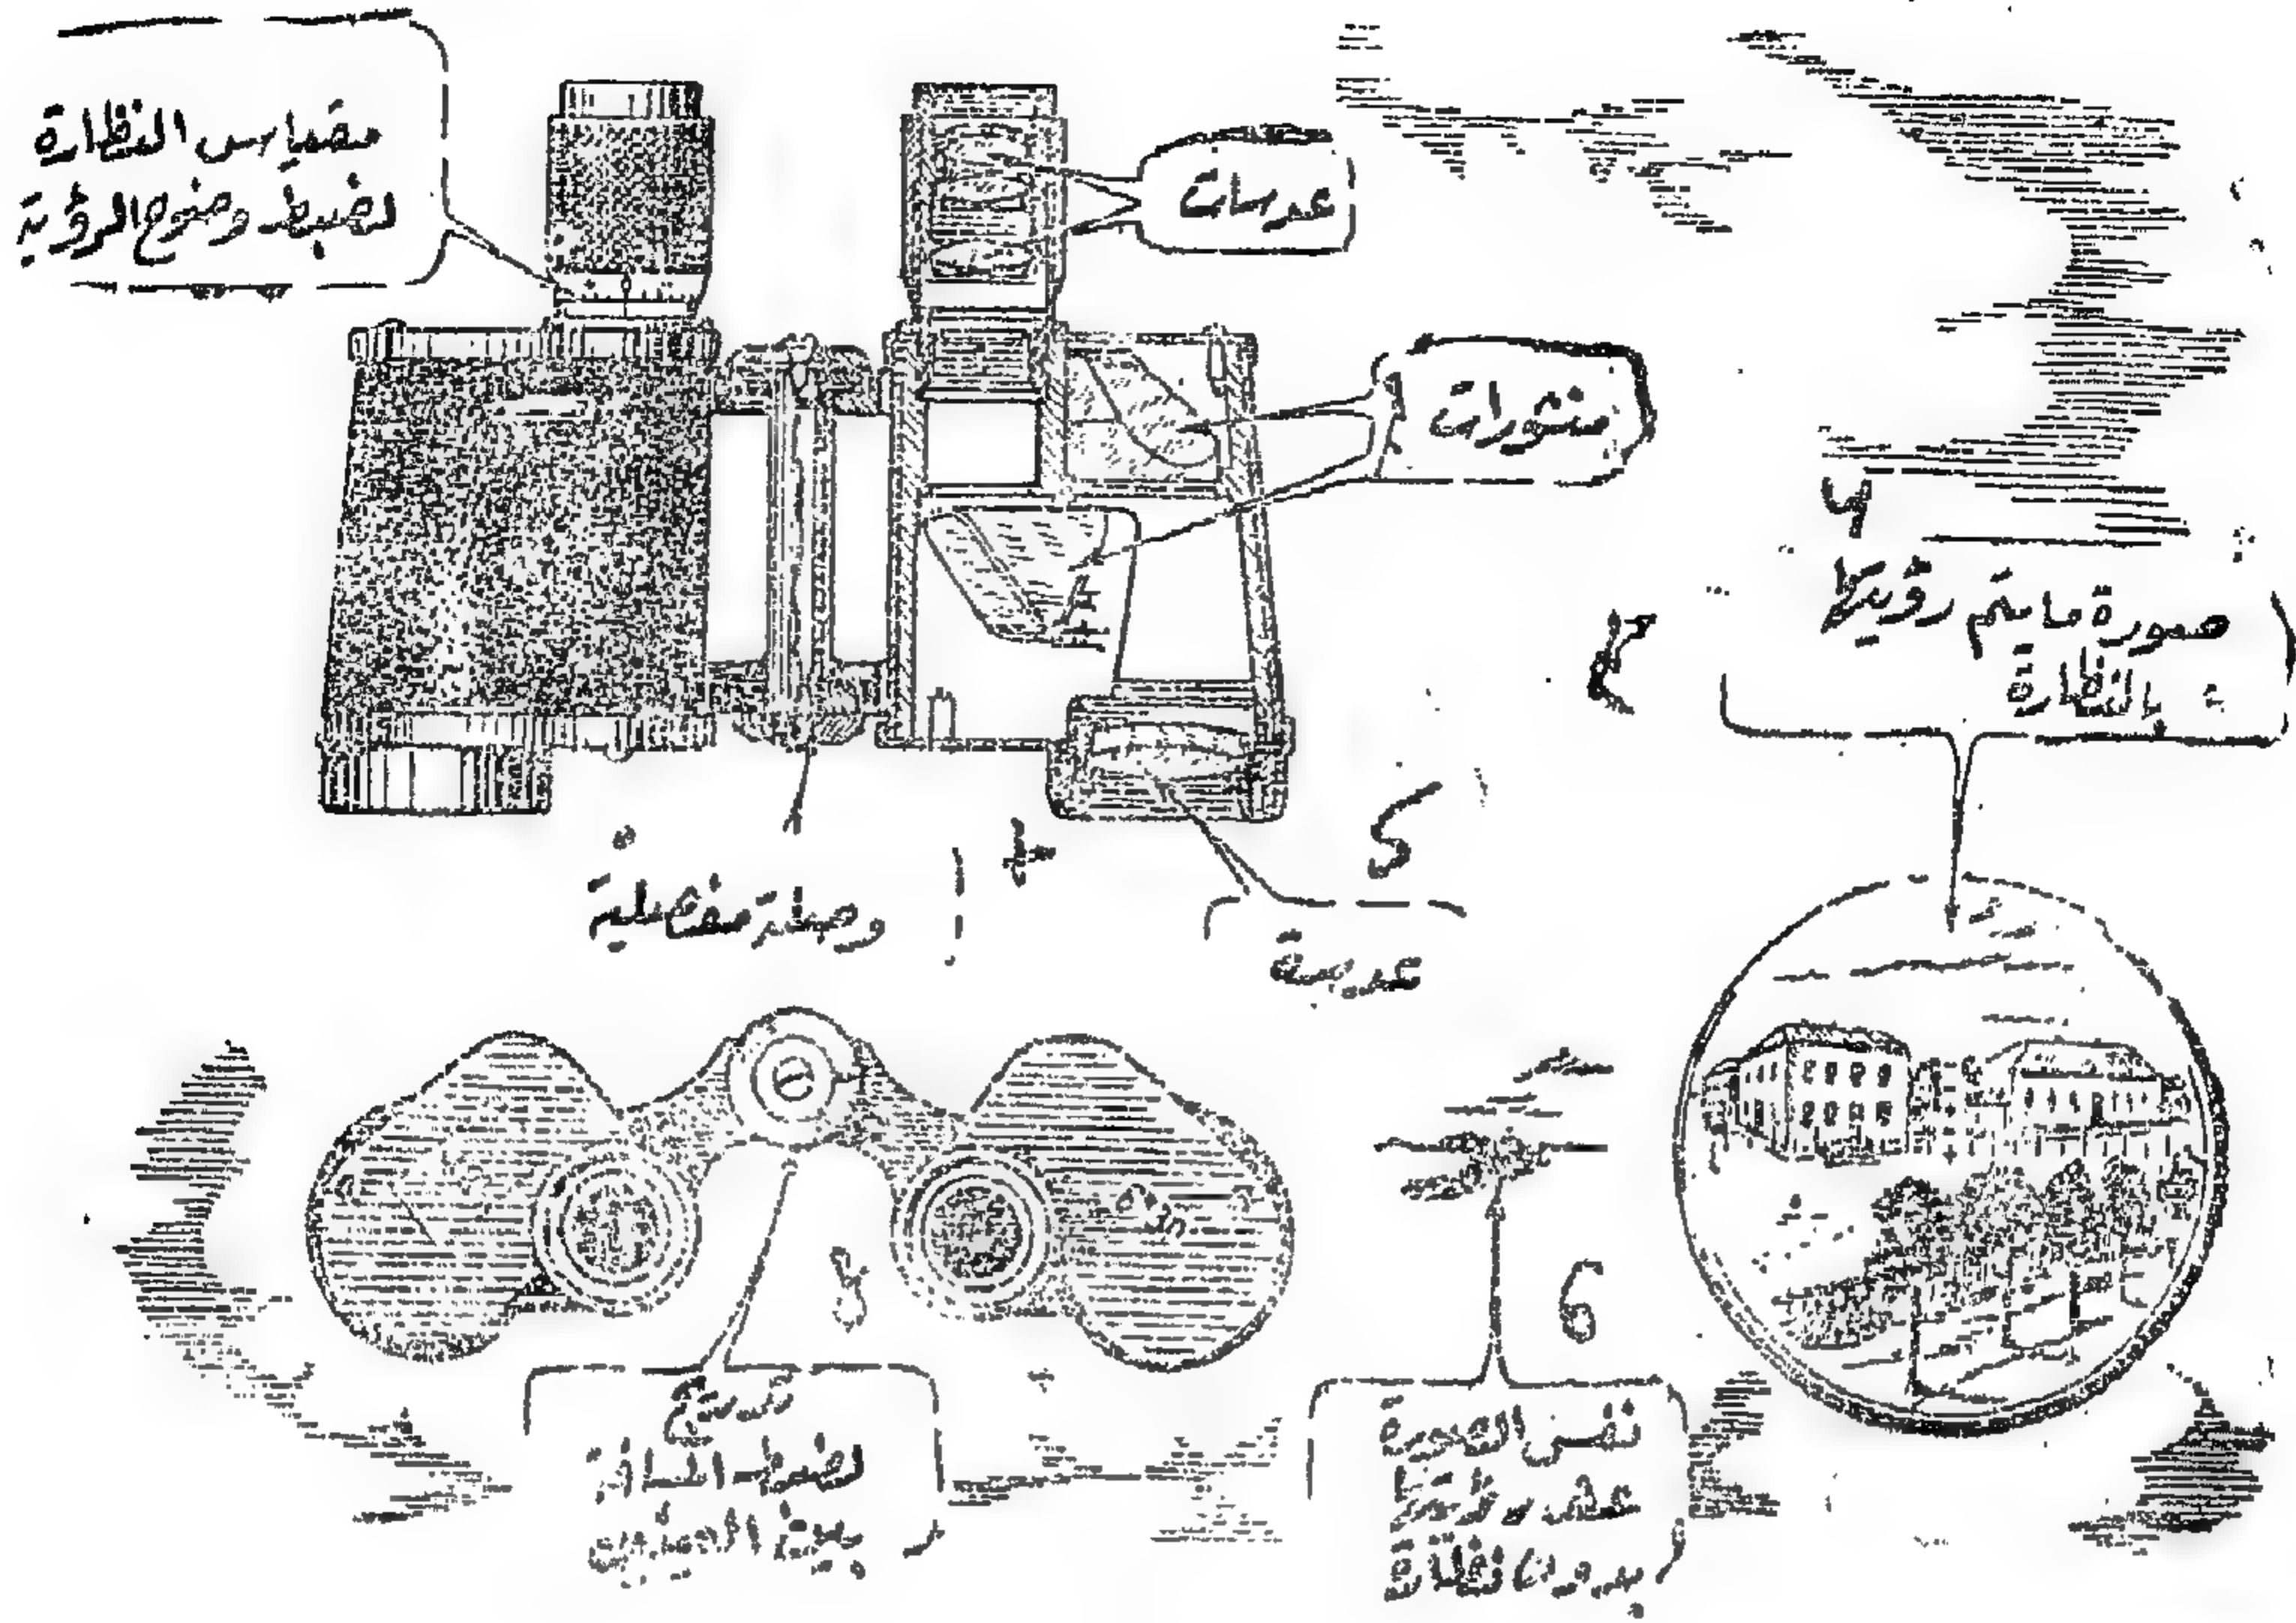 مقياس النظارة
لضبط وضوح الرؤية
عدسات
منشورات
صورة ما يتم رؤيتها
بالنظارة
وصلة مفصلية
5
عدسة
تدريج
لضبط المسافة
بين العينين
6
نفس الصورة
عند رؤيتها
بدون نظارة